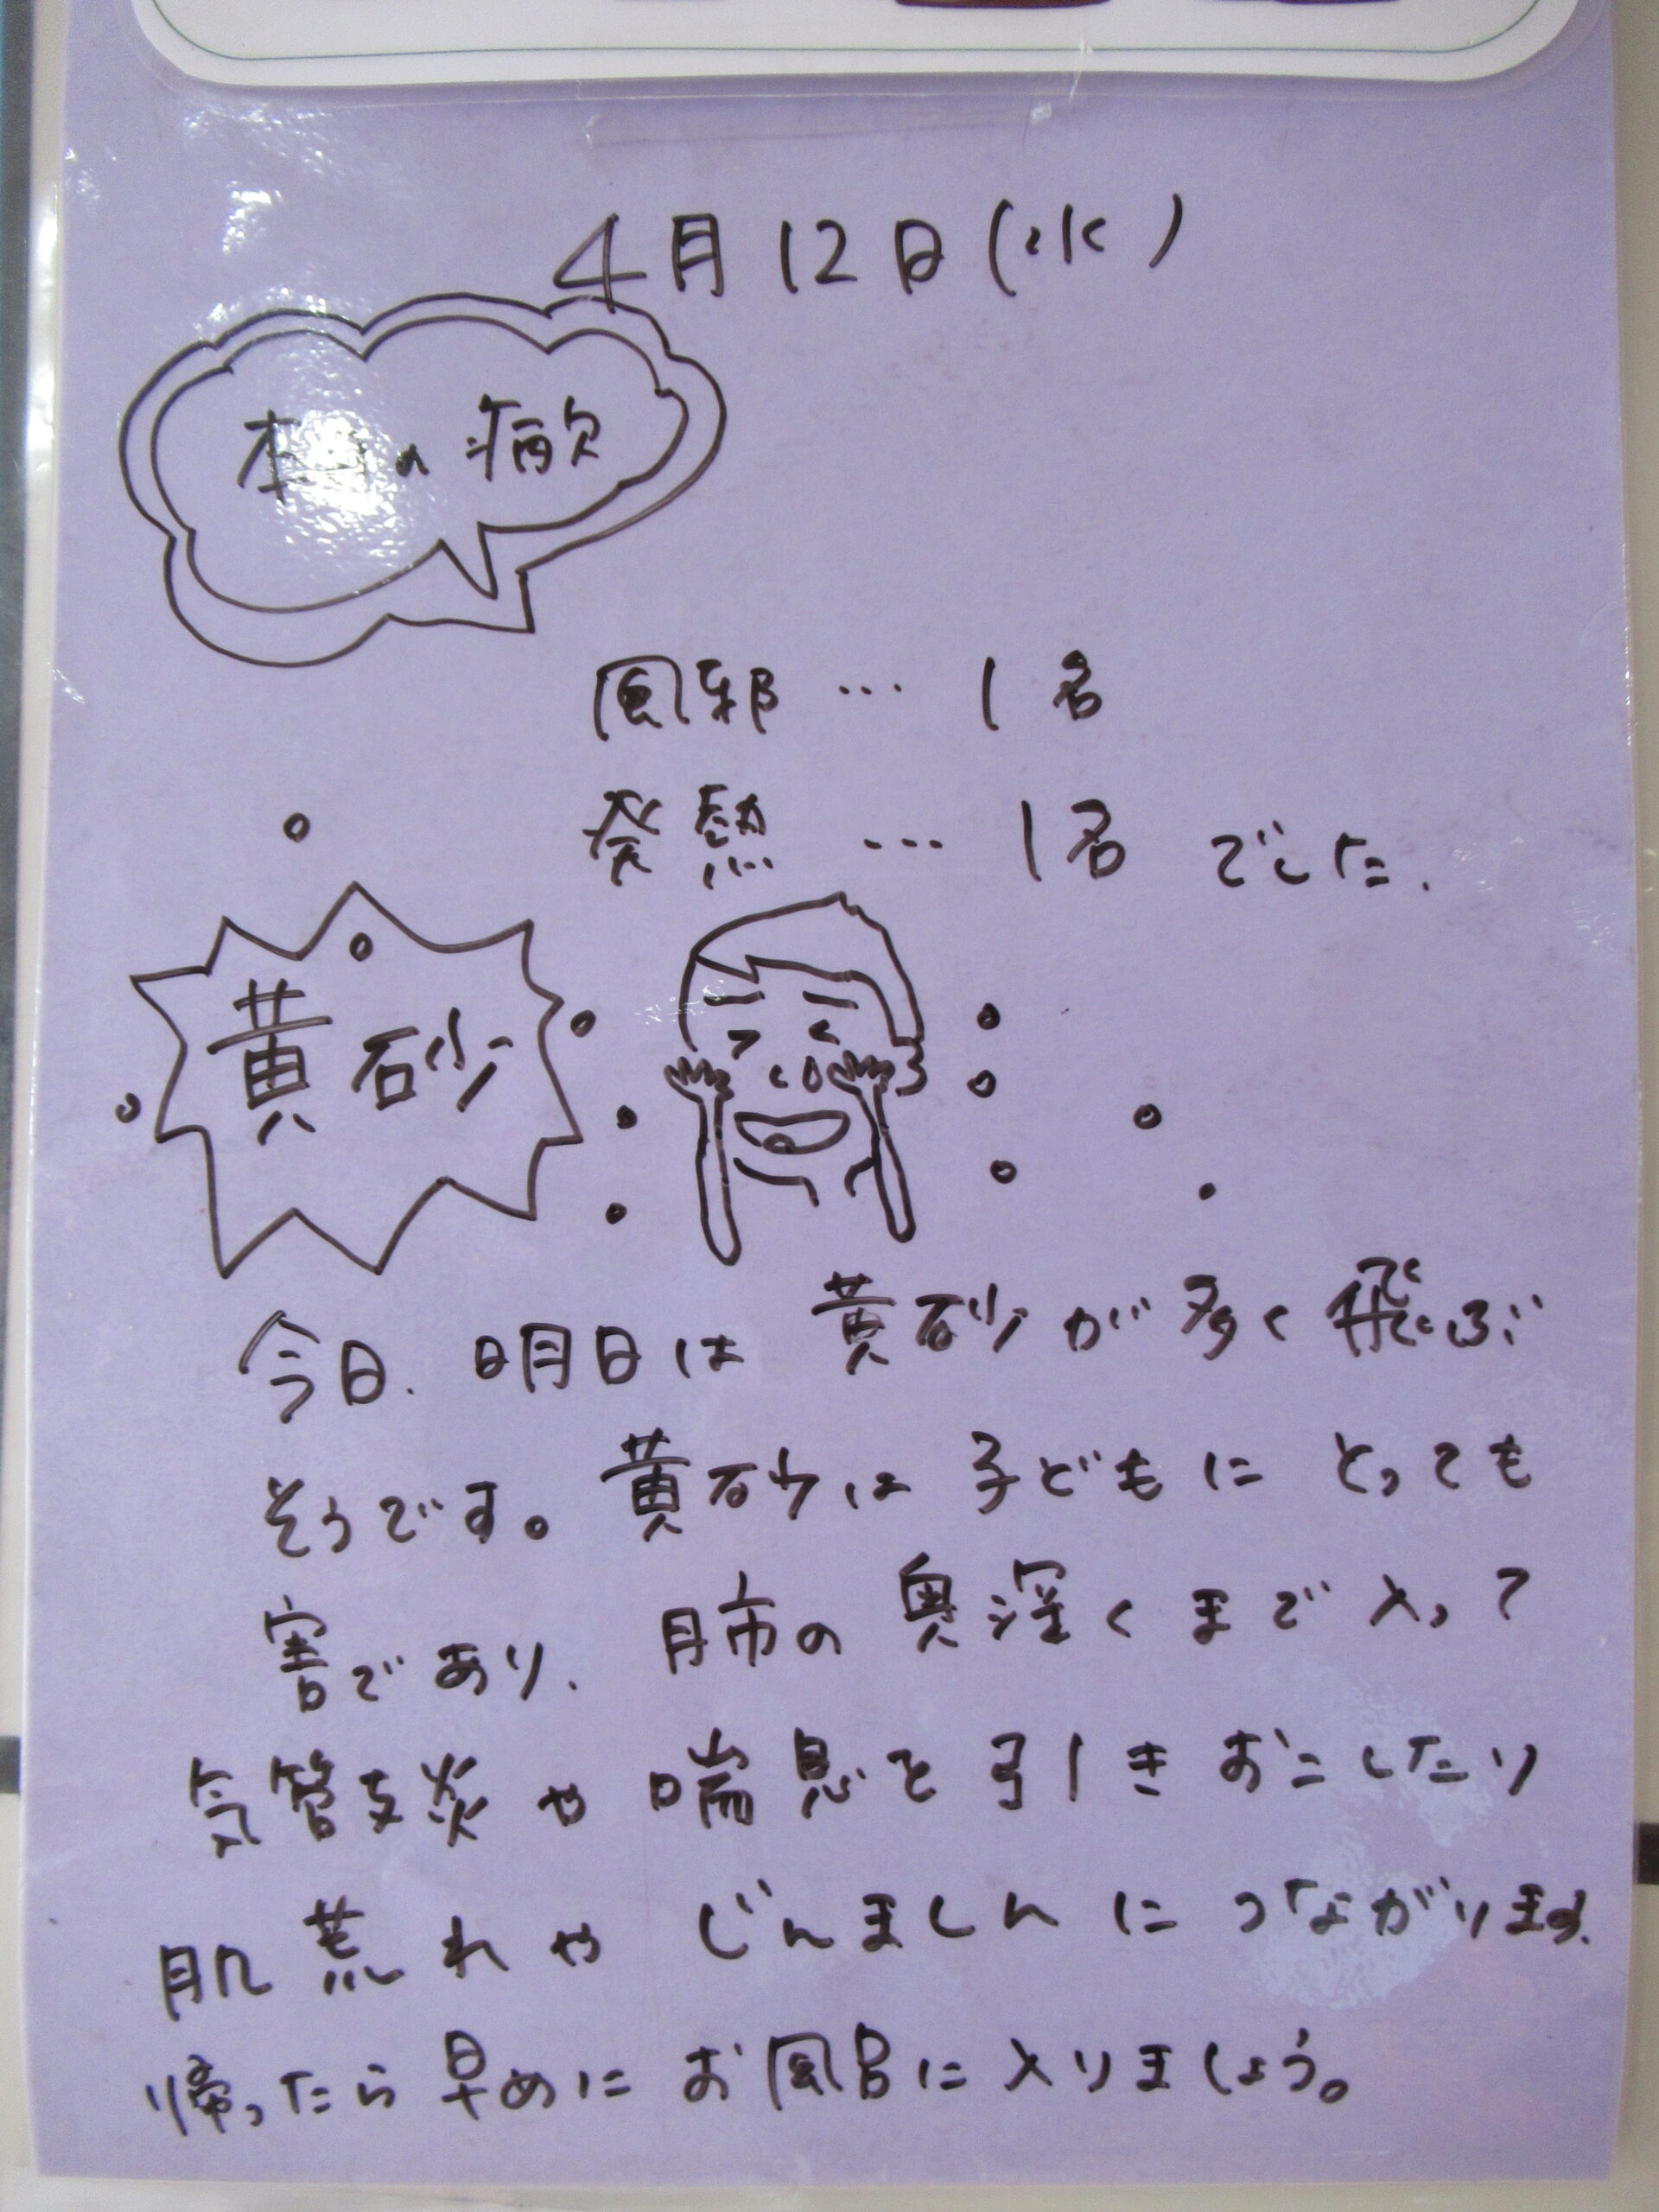 4月12日(水)
本日の病欠
風邪…1名
発熱…1名でした.
黄砂
今日、明日は黄砂が多く飛ぶ
そうです。黄砂は子どもにとっても
害であり、肺の奥深くまで入って
気管支炎や喘息を引きおこしたり
肌荒れやじんましんにつながります.
帰ったら早めにお風呂に入りましょう。